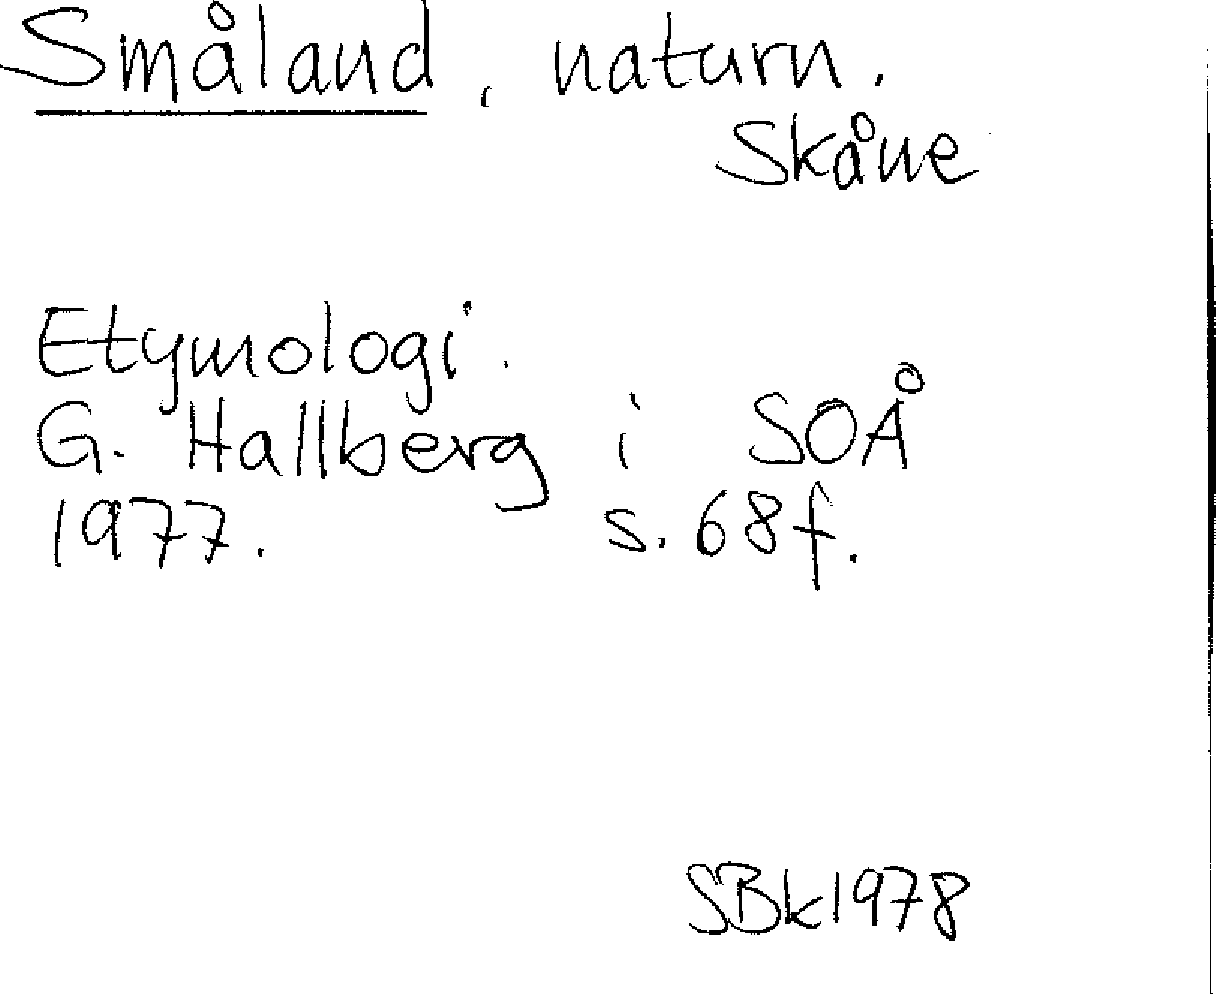 Småland, naturn.
Skåne
Etymologi.
G. Hallberg i SOÅ
1977. s. 68f.
SBk1978